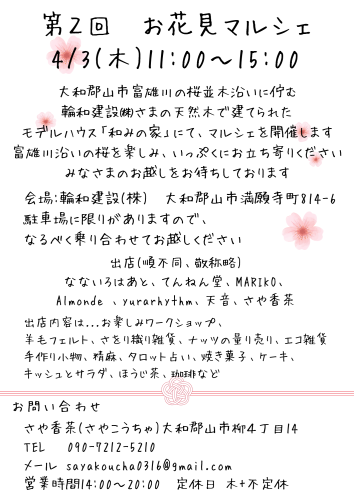 第2回　お花見マルシェ
4/3(木)11:00〜15:00
大和郡山市富雄川の桜並木沿いに佇む
輪和建設㈱さまの天然木で建てられた
モデルハウス「和みの家」にて、マルシェを開催します
富雄川沿いの桜を楽しみ、いっぷくにお立ち寄りください
みなさまのお越しをお待ちしております
会場:輪和建設(株)　大和郡山市満願寺町814-6
駐車場に限りがありますので、
なるべく乗り合わせてお越しください
出店(順不同、敬称略)
なないろはあと、てんねん堂、MARIKO、
Almonde 、yurarhythm、天音、さや香茶
出店内容は...お楽しみワークショップ、
羊毛フェルト、さをり織り雑貨、ナッツの量り売り、エコ雑貨
手作り小物、精麻、タロット占い、焼き菓子、ケーキ、
キッシュとサラダ、ほうじ茶、珈琲など
お問い合わせ
さや香茶(さやこうちゃ)大和郡山市柳4丁目14
TEL　090-7212-5210
メール sayakoucha0316@gmail.com
営業時間14:00〜20:00　定休日 木+不定休